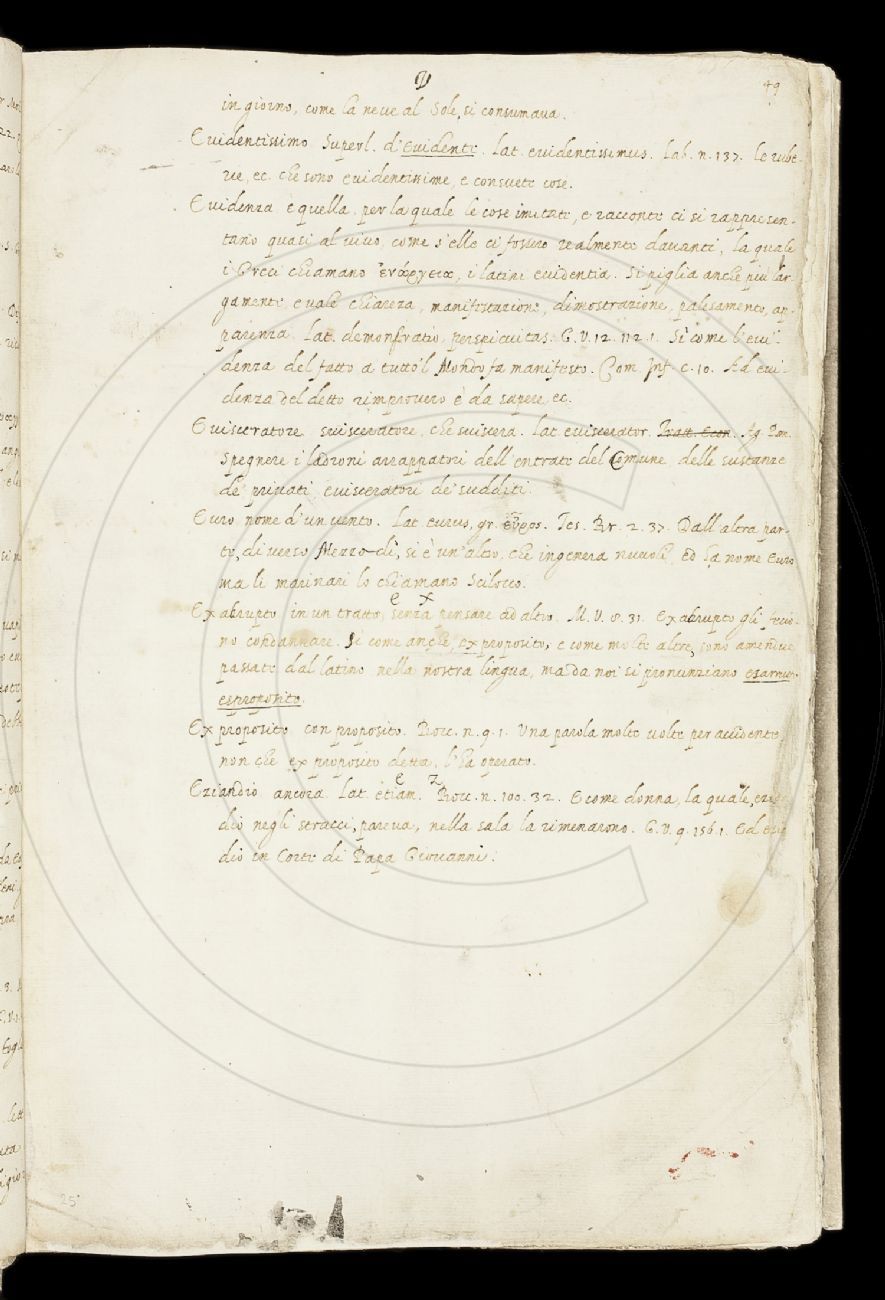 V
49
in giorno, come la neve al Sole, si consumava.
Evidentissimo Superl. d'Evidente. Lat. evidentissimus. Lab. n. 137. le rube-
rie, ec. che sono evidentissime, e consuete cose.
Evidenza e quella, per la quale le cose imitate, e racconte ci si rappresen-
tano quasi al vivo, come s'elle ci fossero realmente davanti, la quale
i Greci chiamano ἐνάργεια, i latini evidentia. Si piglia anche più lar-
gamente e vale chiareza, manifestazione, dimostrazione, palesamento, ap-
parenza. Lat. demonstratio, perspicuitas. G. V. 12. 112. 1. Sì come l'evi-
denza del fatto a tutto'l Mondo fa manifesto. Com. Inf. c. 10. Ad evi-
denza del detto rimprovero è da sapere, ec.
Evisceratore svisceratore, che sviscera. Lat eviscerator. Tratt. Econ. Ag. Pan.
Spegnere i ladroni arrappatori dell'entrate del Comune delle sustanze
de' privati evisceratori de' sudditi.
Euro nome d'un vento. Lat eurus, gr. εὖρος. Tes. Br. 2. 37. Dall'altra par-
te, di verso Mezzo dì, si è un'altro, che ingenera nuvoli, ed ha nome Euro
ma li marinari lo chiamano Scilocco.
e x
Exabrupto in un tratto, senza pensare ad altro. M. V. 8. 31. Exabrupto gli fecio-
no condannare. Si come anche, exproposito, e come molte altre, sono amendue
passate dal latino nella nostra lingua, ma da noi si pronunziano
esproposito.
Ex proposito con proposito. Bocc. n. 9. 1. Una parola molte volte per accidente,
non che ex proposito detta, l'ha operato.
e z
Eziandio ancora. Lat. etiam. Bocc. n. 100. 32. E come donna, la quale, ezian
dio negli stracci, pareva, nella sala la rimenarono. G. V. 9. 156. 1. Ed ezian
dio in Corte di Papa Giovanni.
25